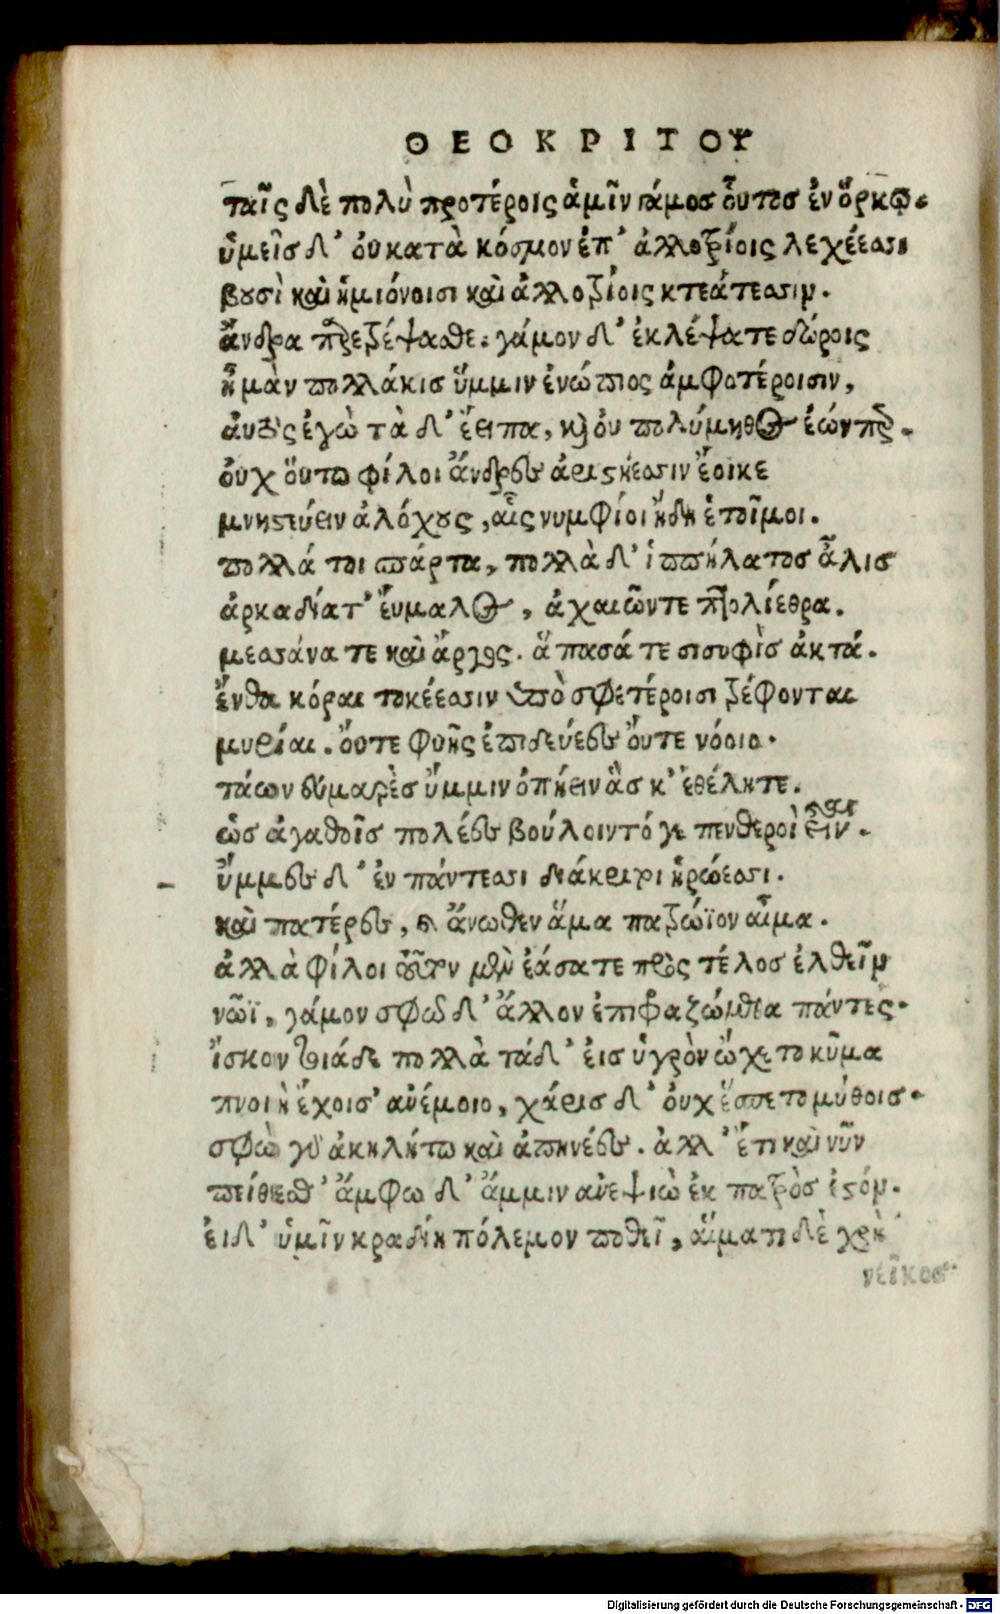 ΘΕΟΚΡΙΤΟΥ
ταῖς δὲ πολὺ προτέροις ἁμῖν γάμος οὗτος ἐν ὅρκῳ.
ὑμεῖς δ' ὀυ κατὰ κόσμον ἐπ' ἀλλοτρίοις λεχέεσσι
βουσὶ καὶ ἡμιόνοισι καὶ ἀλλοτρίοις κτεάτεσσιν.
ἄνδρα παρετρέψασθε. γάμον δ' ἐκλέψατε δώροις
ἦ μὰν πολλάκις ὔμμιν ἐνώπιος ἀμφοτέροισιν,
ἀυτὸς ἐγὼ τὰ δ' ἔειπα, καὶ ὀυ πολύμυθος ἐών περ.
ὀυχ ὅυτω φίλοι ἄνδρες ἀριστήεσσιν ἔοικε
μνηστεύειν ἀλόχους, αἷς νυμφίοι ἤδη ἑτοῖμοι.
πολλά τοι σπάρτα, πολλὰ δ' ἱππήλατος ἆλις
ἀρκαδίατ' ἔυμαλος, ἀχαιῶντε πτολίεθρα.
μεσσάνα τε καὶ ἄργος. ἅπασά τε σισυφὶς ἀκτά.
ἔνθα κόραι τοκέεσσιν ὑπὸ σφετέροισι τρέφονται
μυρίαι. ὄυτε φυῆς ἐπιδευέες ὄυτε νόοιο.
τάων ἐυμαρὲς ὔμμιν ὀπύειν ἃς κ' ἐθέλητε.
ὡς ἀγαθοῖς πολέες βούλοιντό γε πενθεροὶ εἶναι.
ὔμμες δ' ἐν πάντεσσι διάκριτοι ἡρώεσσι.
καὶ πατέρες, καὶ ἄνωθεν ἅμα πατρώϊον αἷμα.
ἀλλὰ φίλοι τοῦτον μὲν ἐάσατε πρὸς τέλος ἐλθεῖν
νῶϊ, γάμον σφῶν δ' ἄλλον ἐπιφραζώμεθα πάντες.
ἴσκον τοιάδε πολλὰ τάδ' εἰς ὑγρὸν ᾤχετο κῦμα
πνοιὴ ἔχοισ' ἀνέμοιο, χάρις δ' ὀυχ ἕσπετο μύθοις.
σφὼ γὰρ ἀκηλήτω καὶ ἀπηνέες. ἀλλ' ἔτι καὶ νῦν
πείθεσθ' ἄμφω δ' ἄμμιν ἀνεψιὼ ἐκ πατρὸς ἐστόν.
ἐι δ' ὑμῖν κραδίη πόλεμον ποθεῖ, αἵματι δὲ χρὴ
νεῖκος